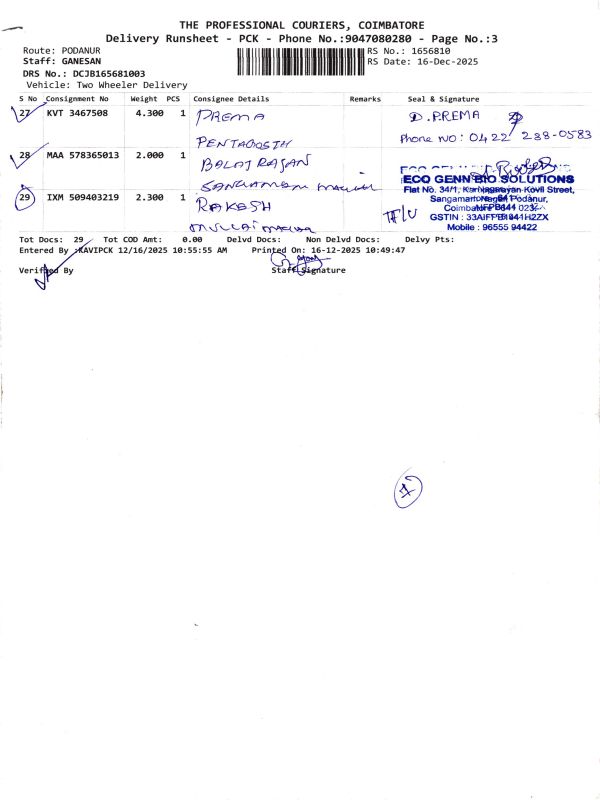 THE PROFESSIONAL COURIERS, COIMBATORE
Delivery Runsheet - PCK - Phone No.:9047080280 - Page No.:3
Route: PODANUR
RS No.: 1656810
Staff: GANESAN
RS Date: 16-Dec-2025
DRS No.: DCJB165681003
Vehicle: Two Wheeler Delivery
S No Consignment No Weight PCS Consignee Details Remarks Seal & Signature
27 KVT 3467508 4.300 1 PREMA D.PREMA
Phone NO: 0422 238-0583
28 MAA 578365013 2.000 1 BALAJ RAJAN
ECO GENN BIO SOLUTIONS
Flat No. 34/1, Karinarayan Kovil Street,
Podanur,
29 IXM 509403219 2.300 1 RAKESH
Mobile : 96555 94422
Tot Docs: 29 Tot COD Amt: 0.00 Delvd Docs: Non Delvd Docs: Delvy Pts:
Entered By :KAVIPCK 12/16/2025 10:55:55 AM Printed On: 16-12-2025 10:49:47
Verified By Staff Signature